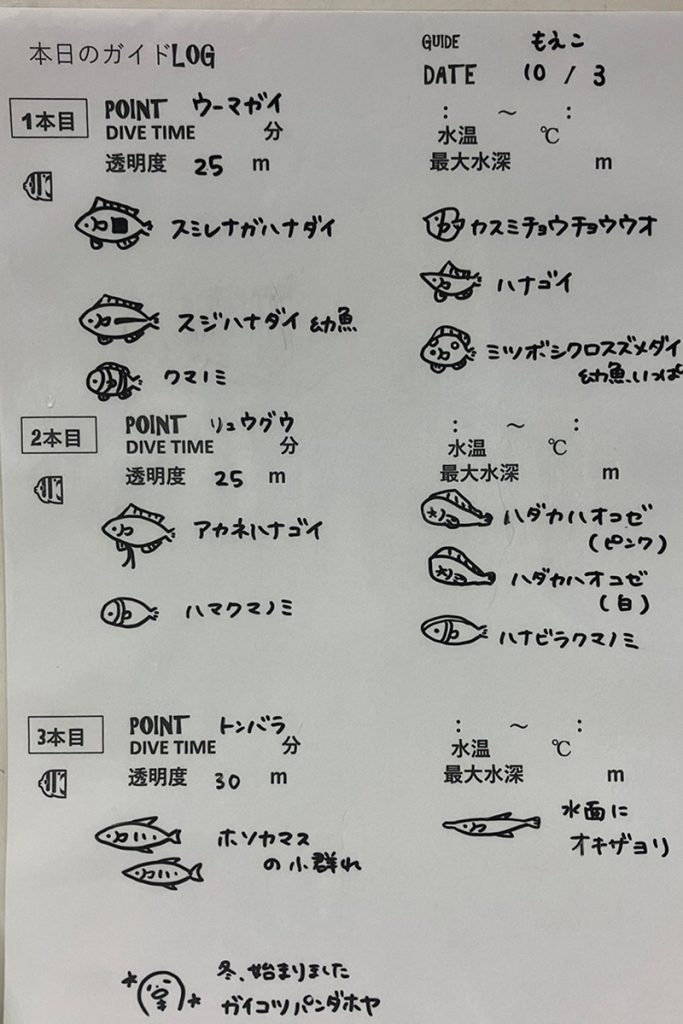 本日のガイドLOG
GUIDE もえこ
DATE 10 / 3
1本目 POINT ウーマガイ : ～ :
DIVE TIME 分 水温 ℃
透明度 25 m 最大水深 m
スミレナガハナダイ カスミチョウチョウウオ
ハナゴイ
スジハナダイ 幼魚
ミツボシクロスズメダイ
クマノミ 幼魚、いっぱ
2本目 POINT リュウグウ : ～ :
DIVE TIME 分 水温 ℃
透明度 25 m 最大水深 m
アカネハナゴイ ハダカハオコゼ
(ピンク)
ハマクマノミ ハダカハオコゼ
(白)
ハナビラクマノミ
3本目 POINT トンバラ : ～ :
DIVE TIME 分 水温 ℃
透明度 30 m 最大水深 m
ホソカマス
の小群れ
水面に
オキザヨリ
冬、始まりました
ガイコツパンダホヤ